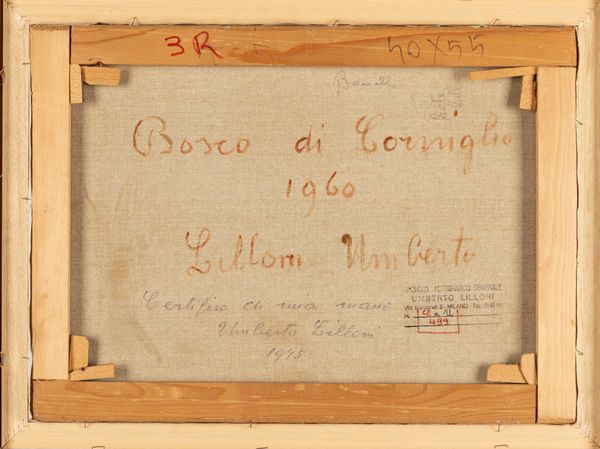 3R
40X55
Bosco di Corniglio
1960
Lilloni Umberto
Certifico di mia mano
Umberto Lilloni
1975
ARCHIVIO FOTOGRAFICO GENERALE
UMBERTO LILLONI
MILANO
499